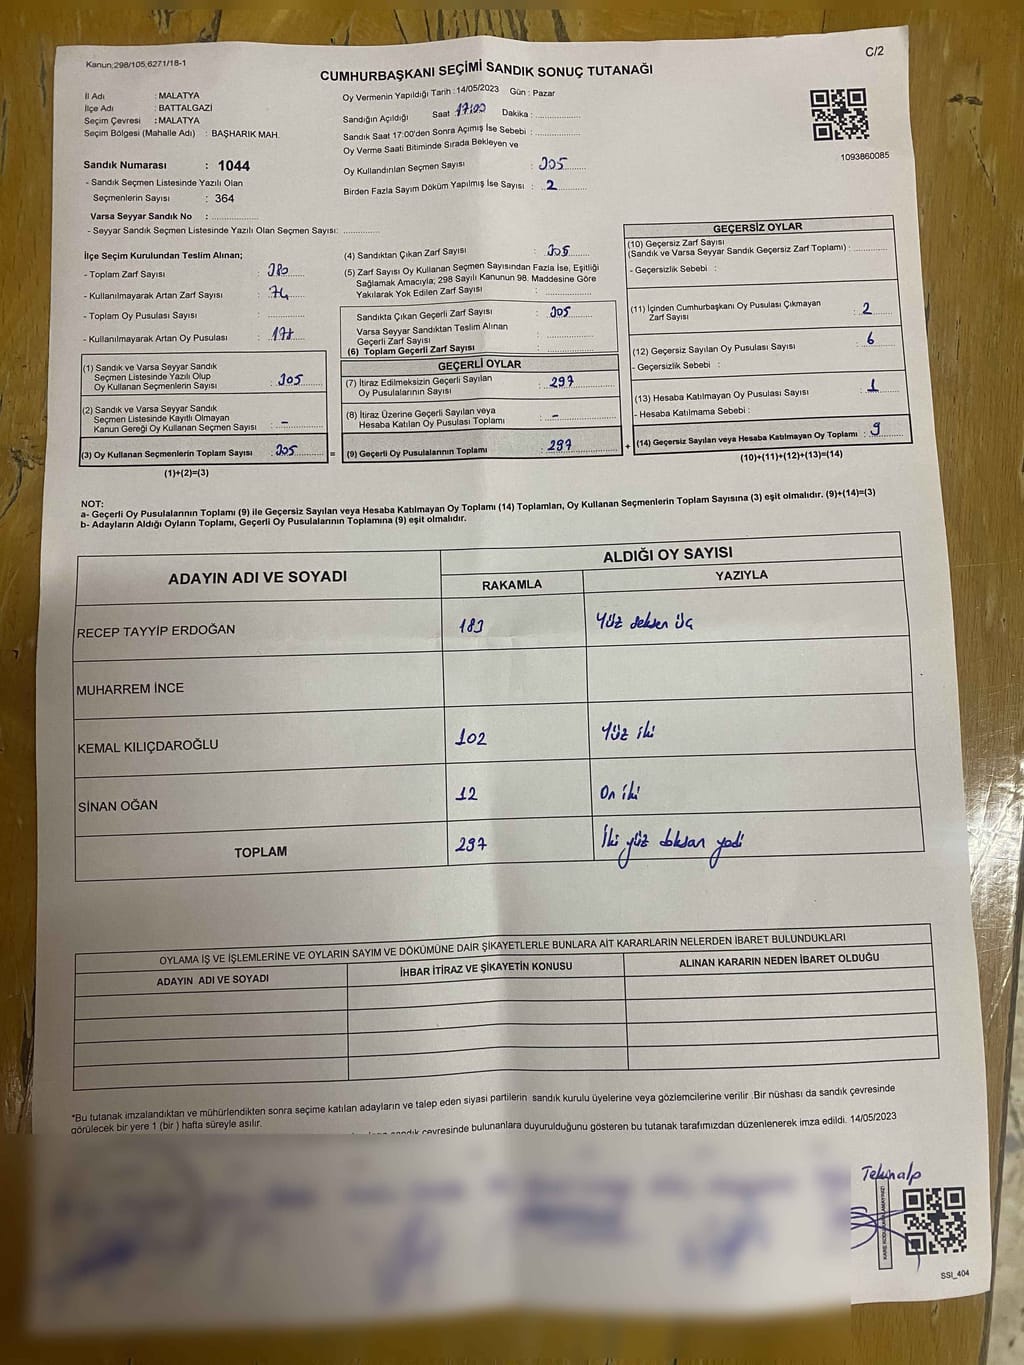 Kanun;298/105,6271/18-1
C/2
CUMHURBAŞKANI SEÇİMİ SANDIK SONUÇ TUTANAĞI
İl Adı : MALATYA
İlçe Adı : BATTALGAZİ
Seçim Çevresi : MALATYA
Seçim Bölgesi (Mahalle Adı) : BAŞHARIK MAH.
Sandık Numarası : 1044
- Sandık Seçmen Listesinde Yazılı Olan
Seçmenlerin Sayısı : 364
Varsa Seyyar Sandık No : ..................
- Seyyar Sandık Seçmen Listesinde Yazılı Olan Seçmen Sayısı: ..............
Oy Vermenin Yapıldığı Tarih : 14/05/2023 Gün : Pazar
Sandığın Açıldığı Saat 17:00 Dakika : ..................
Sandık Saat 17:00'den Sonra Açımış İse Sebebi : ..................
Oy Verme Saati Bitiminde Sırada Bekleyen ve
Oy Kullandırılan Seçmen Sayısı : 305
Birden Fazla Sayım Döküm Yapılmış İse Sayısı : 2
1093860085
İlçe Seçim Kurulundan Teslim Alınan;
- Toplam Zarf Sayısı : 380
- Kullanılmayarak Artan Zarf Sayısı : 74
- Toplam Oy Pusulası Sayısı : ..............
- Kullanılmayarak Artan Oy Pusulası :
(1) Sandık ve Varsa Seyyar Sandık
Seçmen Listesinde Yazılı Olup
Oy Kullanan Seçmenlerin Sayısı : 305
(2) Sandık ve Varsa Seyyar Sandık
Seçmen Listesinde Kayıtlı Olmayan
Kanun Gereği Oy Kullanan Seçmen Sayısı : -
(3) Oy Kullanan Seçmenlerin Toplam Sayısı : 305 =
(1)+(2)=(3)
(4) Sandıktan Çıkan Zarf Sayısı : 305
(5) Zarf Sayısı Oy Kullanan Seçmen Sayısından Fazla İse, Eşitliği
Sağlamak Amacıyla; 298 Sayılı Kanunun 98. Maddesine Göre
Yakılarak Yok Edilen Zarf Sayısı : ..............
Sandıkta Çıkan Geçerli Zarf Sayısı : 305
Varsa Seyyar Sandıktan Teslim Alınan
Geçerli Zarf Sayısı : ..............
(6) Toplam Geçerli Zarf Sayısı : ..............
GEÇERLİ OYLAR
(7) İtiraz Edilmeksizin Geçerli Sayılan
Oy Pusulalarının Sayısı : 297
(8) İtiraz Üzerine Geçerli Sayılan veya
Hesaba Katılan Oy Pusulası Toplamı : -
(9) Geçerli Oy Pusulalarının Toplamı : 297 +
GEÇERSİZ OYLAR
(10) Geçersiz Zarf Sayısı
(Sandık ve Varsa Seyyar Sandık Geçersiz Zarf Toplamı) : ..............
- Geçersizlik Sebebi :
(11) İçinden Cumhurbaşkanı Oy Pusulası Çıkmayan
Zarf Sayısı : 2
(12) Geçersiz Sayılan Oy Pusulası Sayısı : 6
- Geçersizlik Sebebi :
(13) Hesaba Katılmayan Oy Pusulası Sayısı : 1
- Hesaba Katılmama Sebebi :
(14) Geçersiz Sayılan veya Hesaba Katılmayan Oy Toplamı : 9
(10)+(11)+(12)+(13)=(14)
NOT:
a- Geçerli Oy Pusulalarının Toplamı (9) ile Geçersiz Sayılan veya Hesaba Katılmayan Oy Toplamı (14) Toplamları, Oy Kullanan Seçmenlerin Toplam Sayısına (3) eşit olmalıdır. (9)+(14)=(3)
b- Adayların Aldığı Oyların Toplamı, Geçerli Oy Pusulalarının Toplamına (9) eşit olmalıdır.
ADAYIN ADI VE SOYADI
ALDIĞI OY SAYISI
RAKAMLA YAZIYLA
RECEP TAYYİP ERDOĞAN 183 Yüz seksen üç
MUHARREM İNCE
KEMAL KILIÇDAROĞLU 102 Yüz iki
SİNAN OĞAN 12 On iki
TOPLAM 297 İki yüz doksan yedi
OYLAMA İŞ VE İŞLEMLERİNE VE OYLARIN SAYIM VE DÖKÜMÜNE DAİR ŞİKAYETLERLE BUNLARA AİT KARARLARIN NELERDEN İBARET BULUNDUKLARI
ADAYIN ADI VE SOYADI İHBAR İTİRAZ VE ŞİKAYETİN KONUSU ALINAN KARARIN NEDEN İBARET OLDUĞU
*Bu tutanak imzalandıktan ve mühürlendikten sonra seçime katılan adayların ve talep eden siyasi partilerin sandık kurulu üyelerine veya gözlemcilerine verilir .Bir nüshası da sandık çevresinde
görülecek bir yere 1 (bir ) hafta süreyle asılır.
sandık çevresinde bulunanlara duyurulduğunu gösteren bu tutanak tarafımızdan düzenlenerek imza edildi. 14/05/2023
Tekinalp
SSI_404